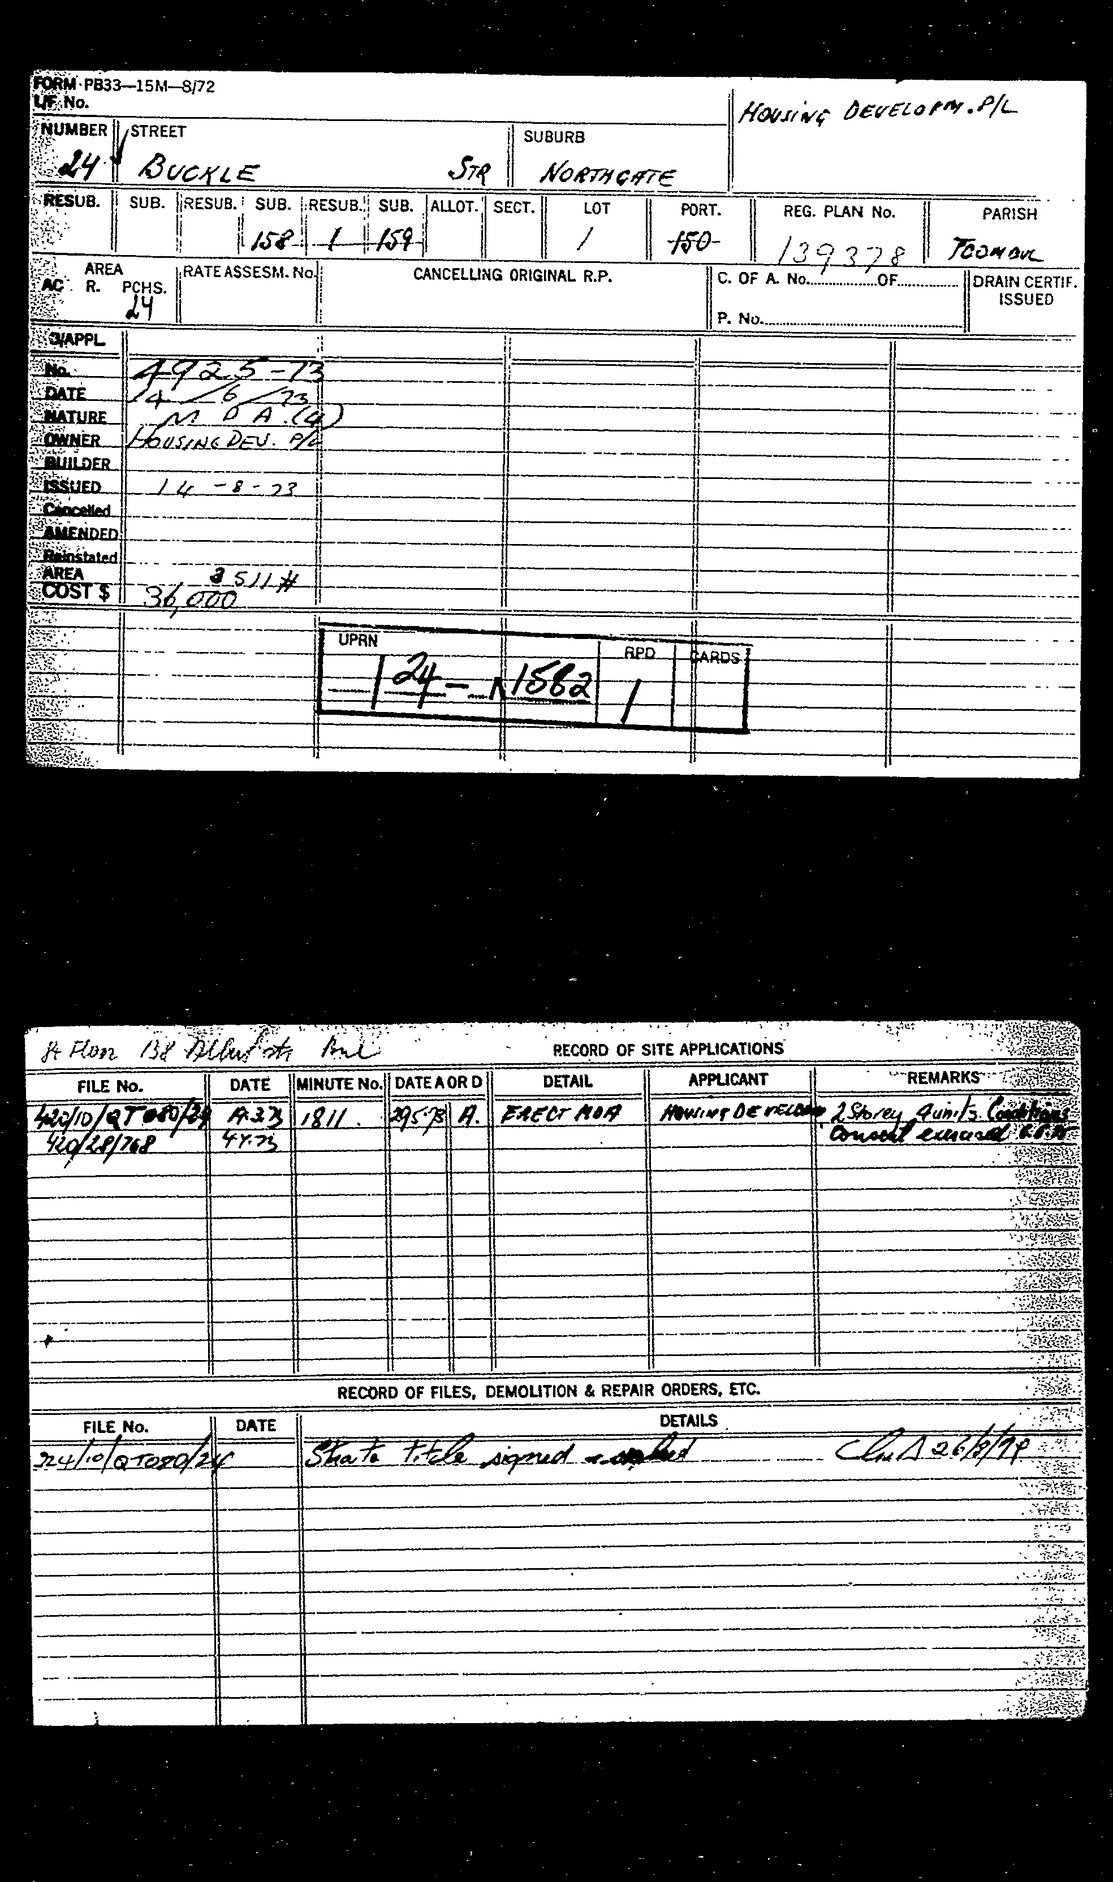 FORM PB33—15M—8/72
L/F No.
HOUSING DEVELOPM. P/L
NUMBER STREET SUBURB
24 BUCKLE STR NORTHGATE
RESUB. SUB. RESUB. SUB. RESUB. SUB. ALLOT. SECT. LOT PORT. REG. PLAN No. PARISH
158 1 159 1 150 139378 TOOMBUL
AREA RATE ASSESM. No. CANCELLING ORIGINAL R.P. C. OF A. No. OF DRAIN CERTIF.
AC R. PCHS. ISSUED
24 P. No.
B/APPL.
No. 4925-73
DATE 14/6/73
NATURE M D A (4)
OWNER HOUSING DEV. P/L
BUILDER
ISSUED 14-8-73
Cancelled
AMENDED
Reinstated
AREA 3511#
COST $ 36,000
UPRN RPD CARDS
24 - 1582 1
138 Albert st.
RECORD OF SITE APPLICATIONS
FILE No. DATE MINUTE No. DATE A OR D DETAIL APPLICANT REMARKS
1811 29573 A. ERECT MDA HOUSING DEVELOPM 2 Storey 4 units Conditions
420/28/768 4.4.73 Consent
RECORD OF FILES, DEMOLITION & REPAIR ORDERS, ETC.
FILE No. DATE DETAILS
Strata title signed & sealed